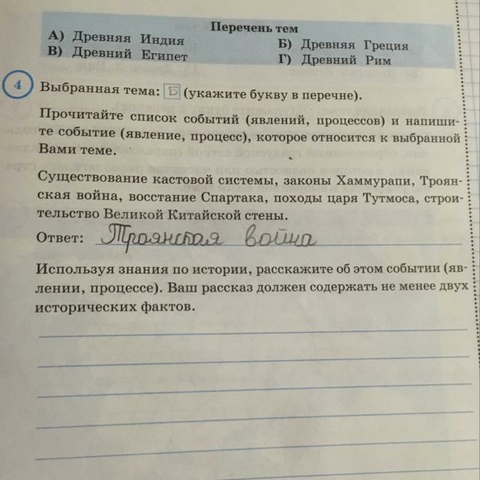 Перечень тем
А) Древняя Индия Б) Древняя Греция
В) Древний Египет Г) Древний Рим
4 Выбранная тема: Б (укажите букву в перечне).
Прочитайте список событий (явлений, процессов) и напиши-
те событие (явление, процесс), которое относится к выбранной
Вами теме.
Существование кастовой системы, законы Хаммурапи, Троян-
ская война, восстание Спартака, походы царя Тутмоса, строи-
тельство Великой Китайской стены.
Ответ: Троянская война
Используя знания по истории, расскажите об этом событии (яв-
лении, процессе). Ваш рассказ должен содержать не менее двух
исторических фактов.